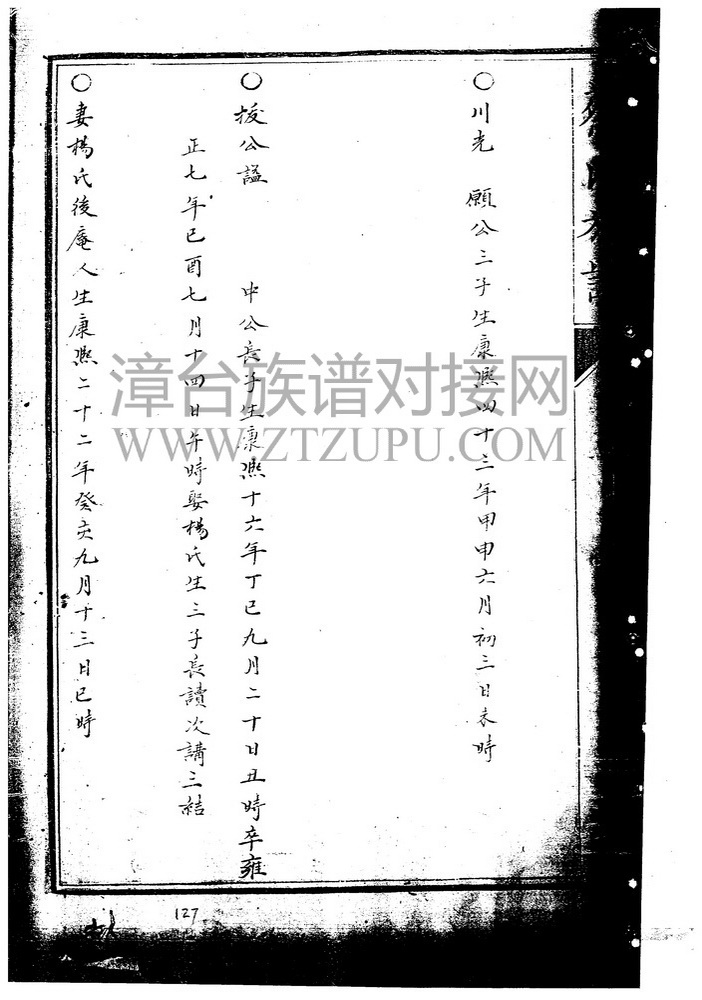 ○川光 願公三子生康熙四十三年甲申六月初三日未時
○援公諡 中公長子生康熙十六年丁巳九月二十日丑時卒雍
正七年已酉七月十四日午時娶楊氏生三子長讀次講三結
○妻楊氏後庵人生康熙二十二年癸亥九月十三日巳時
127
漳台族谱对接网
WWW.ZTZUPU.COM